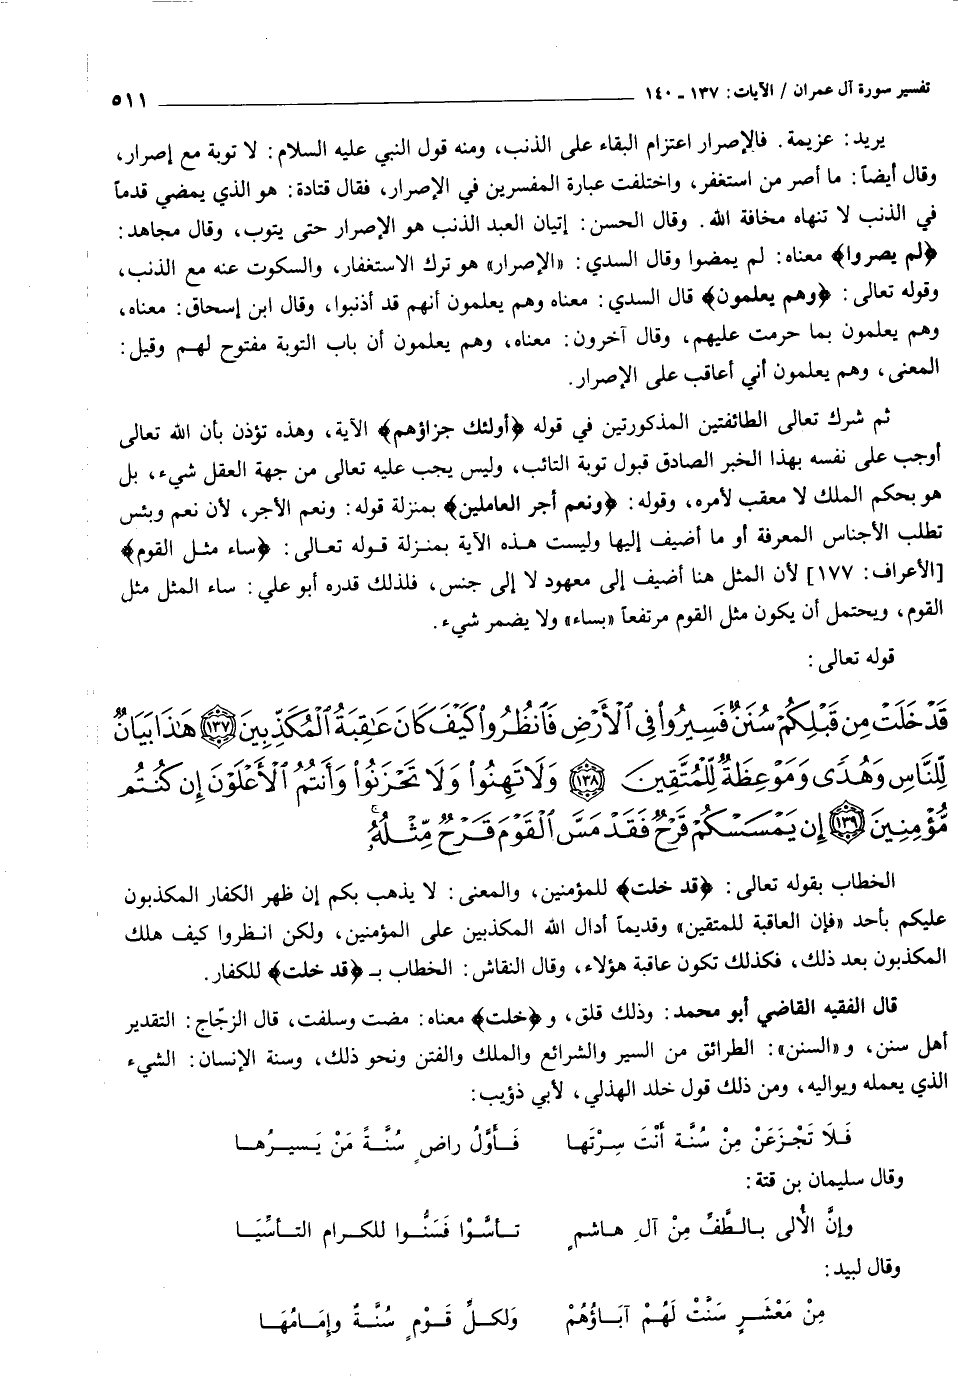 تفسير سورة آل عمران / الآيات: ١٣٧ - ١٤٠ ٥١١
يريد: عزيمة. فالإصرار اعتزام البقاء على الذنب، ومنه قول النبي عليه السلام: لا توبة مع إصرار،
وقال أيضاً: ما أصر من استغفر، واختلفت عبارة المفسرين في الإصرار، فقال قتادة: هو الذي يمضي قدماً
في الذنب لا تنهاه مخافة الله. وقال الحسن: إتيان العبد الذنب هو الإصرار حتى يتوب، وقال مجاهد:
﴿لم يصروا﴾ معناه: لم يمضوا وقال السدي: «الإصرار» هو ترك الاستغفار، والسكوت عنه مع الذنب،
وقوله تعالى: ﴿وهم يعلمون﴾ قال السدي: معناه وهم يعلمون أنهم قد أذنبوا، وقال ابن إسحاق: معناه،
وهم يعلمون بما حرمت عليهم، وقال آخرون: معناه، وهم يعلمون أن باب التوبة مفتوح لهم وقيل:
المعنى، وهم يعلمون أني أعاقب على الإصرار.
ثم شرك تعالى الطائفتين المذكورتين في قوله ﴿أولئك جزاؤهم﴾ الآية، وهذه تؤذن بأن الله تعالى
أوجب على نفسه بهذا الخبر الصادق قبول توبة التائب، وليس يجب عليه تعالى من جهة العقل شيء، بل
هو بحكم الملك لا معقب لأمره، وقوله: ﴿ونعم أجر العاملين﴾ بمنزلة قوله: ونعم الأجر، لأن نعم وبئس
تطلب الأجناس المعرفة أو ما أضيف إليها وليست هذه الآية بمنزلة قوله تعالى: ﴿ساء مثل القوم﴾
[الأعراف: ١٧٧] لأن المثل هنا أضيف إلى معهود لا إلى جنس، فلذلك قدره أبو علي: ساء المثل مثل
القوم، ويحتمل أن يكون مثل القوم مرتفعاً «بساء» ولا يضمر شيء.
قوله تعالى:
قَدْ خَلَتْ مِن قَبْلِكُمْ سُنَنٌ فَسِيرُوا۟ فِى ٱلْأَرْضِ فَٱنظُرُوا۟ كَيْفَ كَانَ عَٰقِبَةُ ٱلْمُكَذِّبِينَ ١٣٧ هَٰذَا بَيَانٌ
لِّلنَّاسِ وَهُدًى وَمَوْعِظَةٌ لِّلْمُتَّقِينَ ١٣٨ وَلَا تَهِنُوا۟ وَلَا تَحْزَنُوا۟ وَأَنتُمُ ٱلْأَعْلَوْنَ إِن كُنتُم
مُّؤْمِنِينَ ١٣٩ إِن يَمْسَسْكُمْ قَرْحٌ فَقَدْ مَسَّ ٱلْقَوْمَ قَرْحٌ مِّثْلُهُۥ
الخطاب بقوله تعالى: ﴿قد خلت﴾ للمؤمنين، والمعنى: لا يذهب بكم إن ظهر الكفار المكذبون
عليكم بأحد «فإن العاقبة للمتقين» وقديماً أدال الله المكذبين على المؤمنين، ولكن انظروا كيف هلك
المكذبون بعد ذلك، فكذلك تكون عاقبة هؤلاء، وقال النقاش: الخطاب بـ ﴿قد خلت﴾ للكفار.
قال الفقيه القاضي أبو محمد: وذلك قلق، و ﴿خلت﴾ معناه: مضت وسلفت، قال الزجّاج: التقدير
أهل سنن، و «السنن»: الطرائق من السير والشرائع والملك والفتن ونحو ذلك، وسنة الإنسان: الشيء
الذي يعمله ويواليه، ومن ذلك قول خلد الهذلي، لأبي ذؤيب:
فَلَا تَجْزَعَنْ مِنْ سُنَّة أَنْتَ سِرْتَها فَأَوَّلُ راضٍ سُنَّةً مَنْ يَسيرُها
وقال سليمان بن قتة:
وإنَّ الأُلى بالطَّفِّ مِنْ آلِ هاشمٍ تأسَّوْا فَسَنُّوا للكرام التأسِّيَا
وقال لبيد:
مِنْ مَعْشَرٍ سَنَّتْ لَهُمْ آبَاؤُهُمْ وَلكلِّ قَوْمٍ سُنَّةٌ وإمَامُهَا